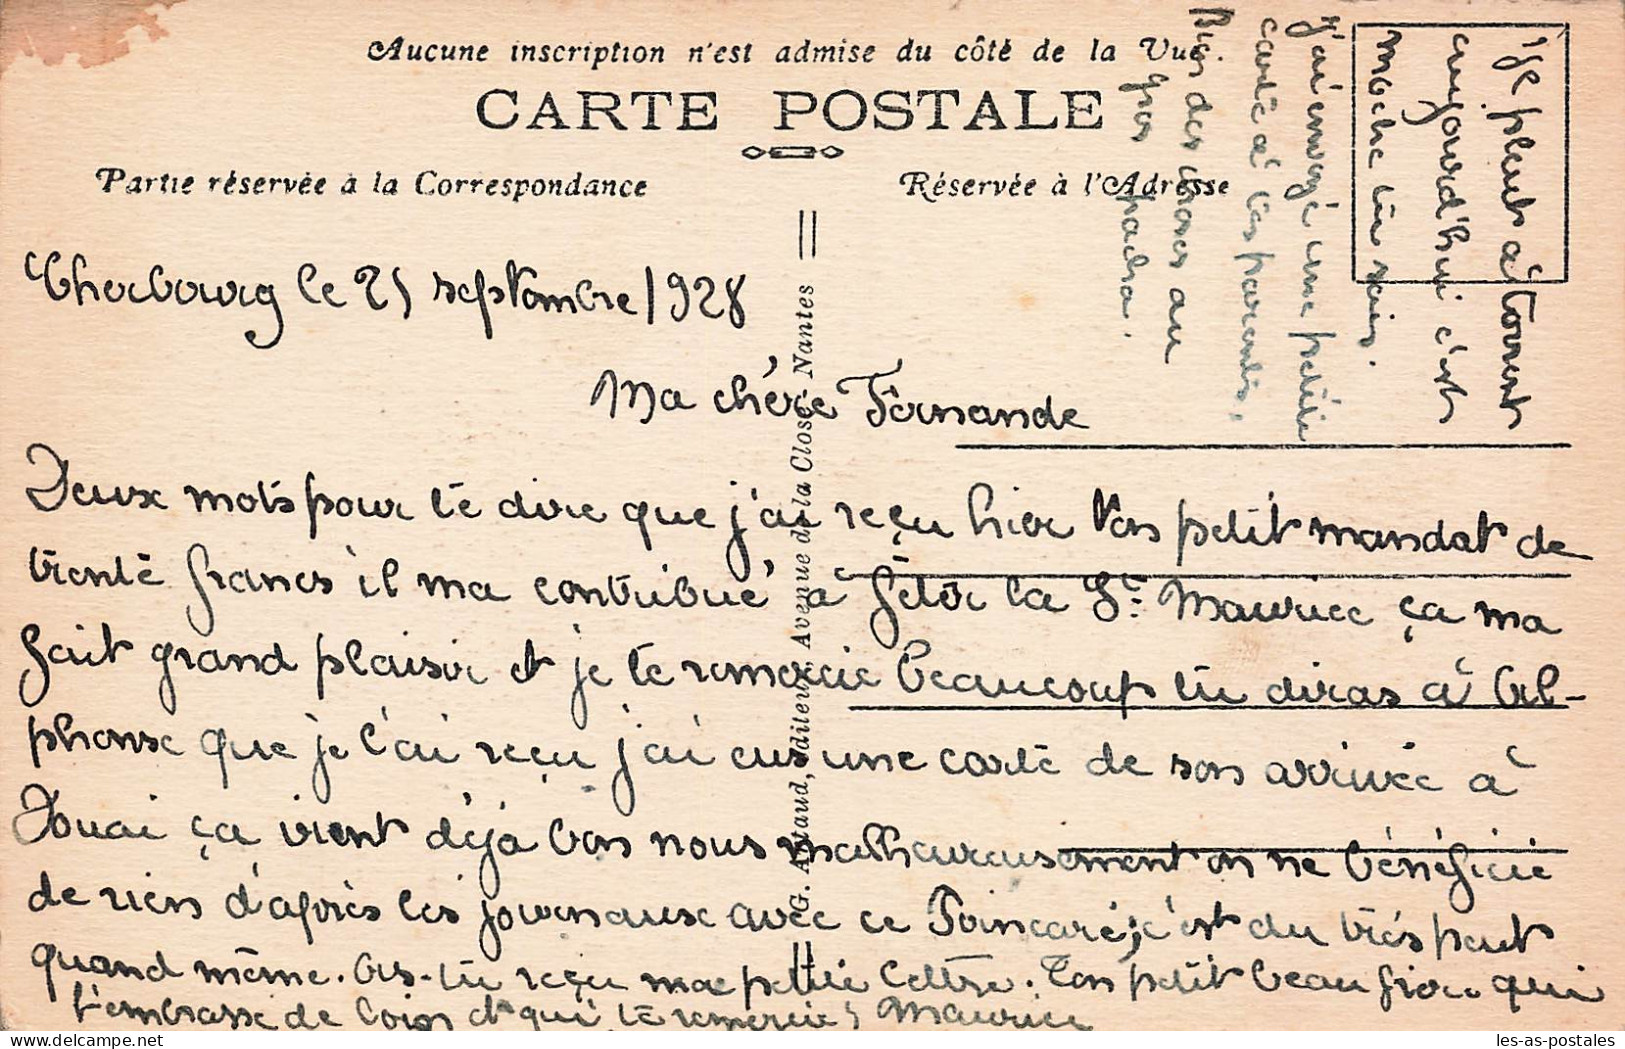 Aucune inscription n'est admise du côté de la Vue.
CARTE POSTALE
Partie réservée à la Correspondance
Réservée à l'Adresse
Cherbourg le 25 septembre 1928
Ma chère Fernande
Deux mots pour te dire que j'ai reçu hier ton petit mandat de
trente francs il ma contribué à fêter la St Maurice ça ma
fait grand plaisir et je te remercie beaucoup tu diras à Al-
phonse que je l'ai reçu j'ai eus une carte de son arrivée à
Douai ça vient déjà bon nous malheureusement on ne bénéficie
de rien d'après les journeaux avec ce Poincaré, c'est du très peut
quand même. As-tu reçu ma petite lettre. Ton petit beau frère qui
t'embrasse de loin et qui te remercie, Maurice
il pleut à torrent
aujourd'hui c'est
moche tu sais.
j'ai envoyé une petite
carte à tes parents,
Bien des choses au
gros pacha.
G. Artaud, Editeur, Avenue de la Close, Nantes
les-as-postales